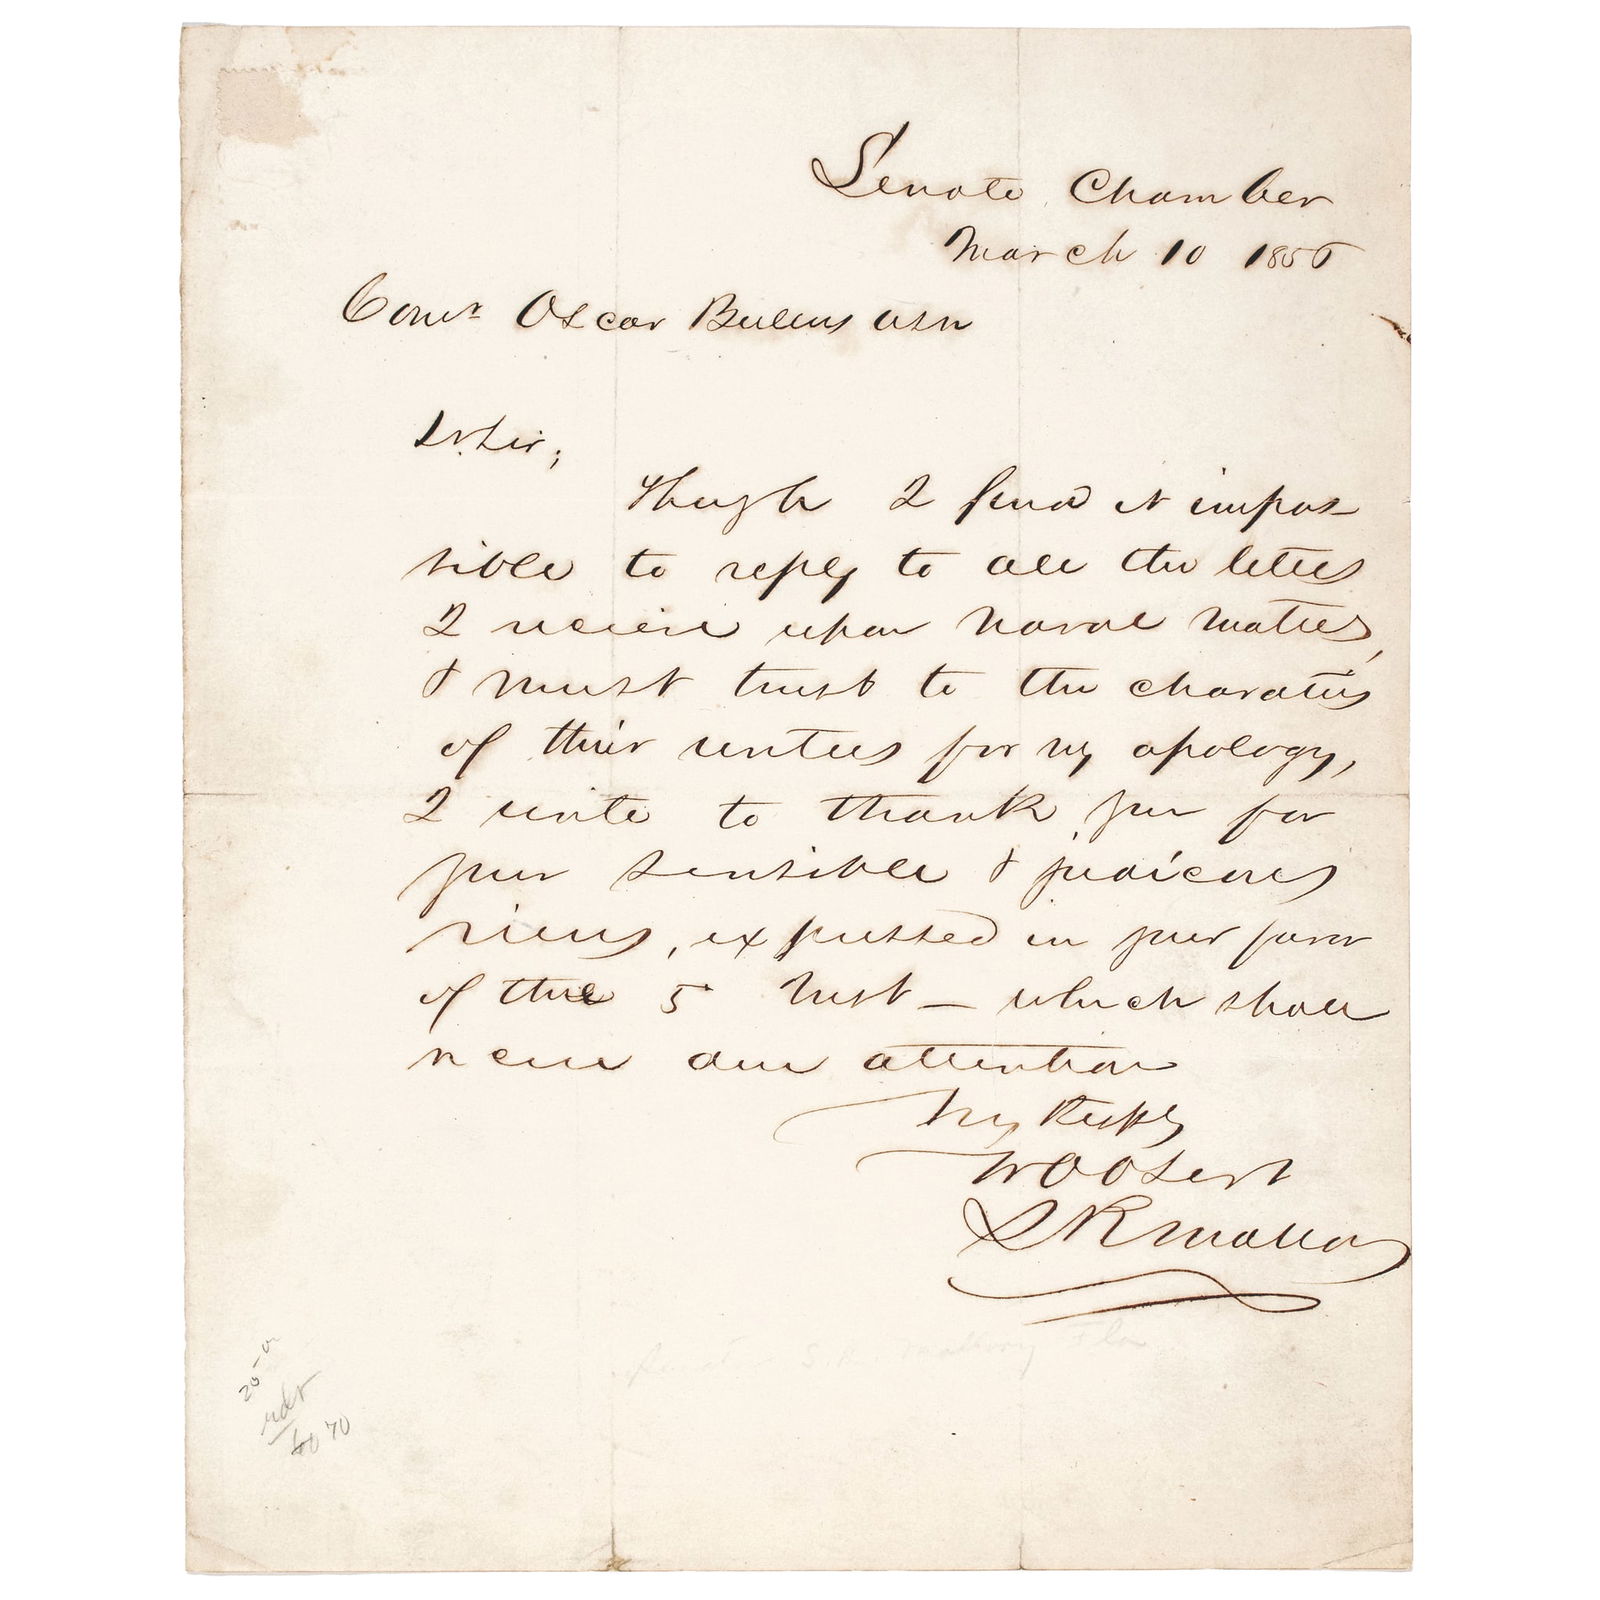 Senate Chamber
March 10 1856
Comr Oscar Bullus USN
Dr Sir;
Though I find it impos-
sible to reply to all the letters
I receive upon Naval matters,
& must trust to the charaters
of their writers for my apology,
I write to thank you for
your sensible & judicious
views, expressed in your favor
of the 5 Inst — which shall
receive due attention
Vy Respy
Yr Ob Servt
S R Mallory
Senator S. R. Mallory Fla
20-
40 70